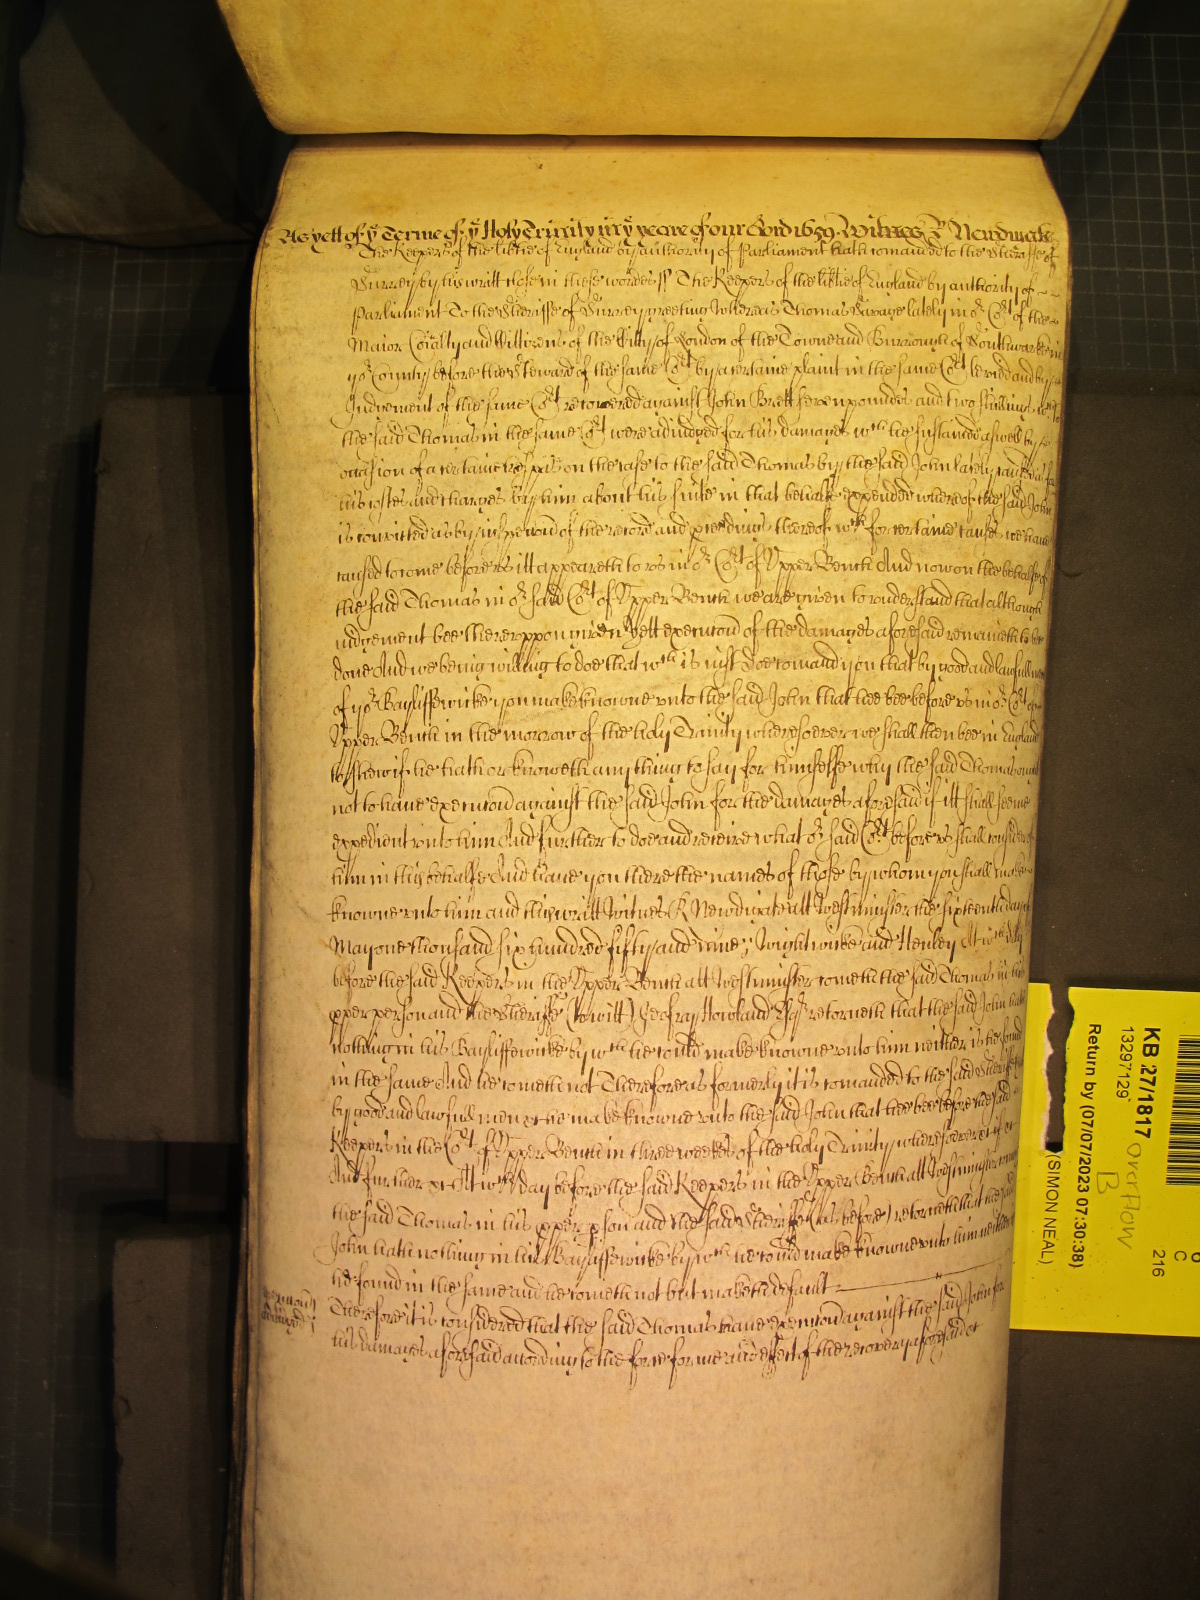 As yett of ye Terme of ye Holy Trinity in ye yeare of our Lord 1659. Witnes R Newdigate
The Keepers of the libtie of England by authority of Parliament hath comanded to the Sheriffe of
Surrey by his writt close in these wordes ss The Keepers of the libtie of England by authority of
Parliament To the Sheriffe of Surrey greeting Whereas Thomas Savage lately in or Cort of the
Maior Coialty and Cittizens of the Citty of London of the Towne and Burrough of Southwarke in
yor County before the Steward of the same Cort by a certaine plaint in the same Cort levied and by
Judgement of the same Cort recovered against John Brett seven poundes and two shillings
the said Thomas in the same Cort were adjudged for his damages wch he sustained aswell by
occasion of a certaine trespas on the case to the said Thomas by the said John lately
his costes and charges by him about his suite in that behalfe expended whereof the said John
is convicted as by inspeccon of the record and pceedings thereof wch for certaine causes we have
caused to come before us itt appeareth to us in or Cort of Upper Bench And now on the behalfe of
the said Thomas in or said Cort of Upper Bench we are given to understand that although
judgement bee thereuppon given yett execucon of the damages aforesaid remaineth to be
done And we being willing to doe that wch is just Doe comand you that by good and lawfull men
of yor Bayliffewicke you make knowne unto the said John that hee bee before us in or Cort of
Upper Bench in the morrow of the holy Trinity wheresoever we shall then bee in England
to shew if he hath or knoweth any thing to say for himselfe why the said Thomas ought
not to have execucon against the said John for the damages aforesaid if itt shall seeme
expedient unto him And further to doe and receive what or said Cort before us shall consider of
him in this behalfe And have you there the names of those by whom you shall make
knowne unto him and this writt Witnes R Newdigate att Westminster the sixteenth day of
May one thousand six hundred fifty and nine; Wightwicke and Henley Att wch day
before the said Keepers in the Upper Bench att Westminster cometh the said Thomas in his
pper person and the Sheriffe (to witt) Geofray Howland Esqr retorneth that the said John hath
nothing in his Bayliffewicke by wch he could make knowne unto him neither is he found
in the same And he cometh not Therefore as formerly it is comanded to the said Sheriffe
by good and lawfull men &c he make knowne unto the said John that hee bee before the said
Keepers in the Cort of Upper Bench in three weekes of the holy Trinity wheresoever &c if &c
And further &c Att wch day before the said Keepers in the Upper Bench att Westminster cometh
the said Thomas in his pper pson and the said Sheriffe (as before) retorneth that the said
John hath nothing in his Bayliffewicke by wch he could make knowne unto him neither is
he found in the same and he cometh not but maketh default
Therefore it is considered that the said Thomas have execucon against the said John for
his damages aforesaid according to the force forme and effect of the recovery aforesaid &c
execucon
adiudged
KB 27/1817
13297129
Return by (07/07/2023 07:30:38)
(SIMON NEAL)
overflow
B
C
216